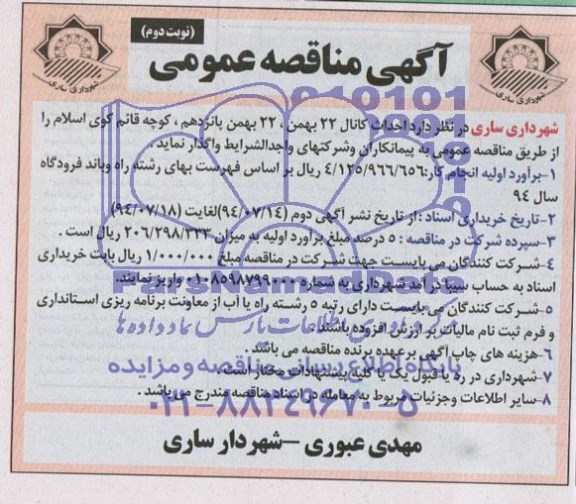 (نوبت دوم)
آگهی مناقصه عمومی
شهرداری ساری
شهرداری ساری
شهرداری ساری در نظر دارد احداث کانال ۲۲ بهمن ، ۲۲ بهمن پانزدهم ، کوچه قائم کوی اسلام را
از طریق مناقصه عمومی به پیمانکاران وشرکتهای واجدالشرایط واگذار نماید
۱-برآورد اولیه انجام کار: ۴/۱۲۵/۹۶۶/۶۵۶ ریال بر اساس فهرست بهای رشته راه وباند فرودگاه
سال ۹۴
۲-تاریخ خریداری اسناد :از تاریخ نشر آگهی دوم (۹۴/۰۷/۱۴)لغایت (۹۴/۰۷/۱۸)
۳-سپرده شرکت در مناقصه : ۵ درصد مبلغ برآورد اولیه به میزان ۲۰۶/۲۹۸/۳۳۳ ریال است .
۴-شرکت کنندگان می بایست جهت شرکت در مناقصه مبلغ ۱/۰۰۰/۰۰۰ ریال بابت خریداری
اسناد به حساب سیبا درآمد شهرداری به شماره واریز نمایند.
۵-شرکت کنندگان می بایست دارای رتبه ۵ رشته راه یا آب از معاونت برنامه ریزی استانداری
و فرم ثبت نام مالیات بر ارزش افزوده باشند.
۶-هزینه های چاپ آگهی برعهده برنده مناقصه می باشد .
۷-شهرداری در رد یا قبول یک یا کلیه پیشنهادات مختار است.
۸-سایر اطلاعات وجزئیات مربوط به معامله در اسناد مناقصه مندرج می باشد .
مهدی عبوری -شهردار ساری
ParsNamadData
پایگاه اطلاع رسانی مناقصه و مزایده
۰۲۱-۸۸۳۴۹۶۷۰-۵